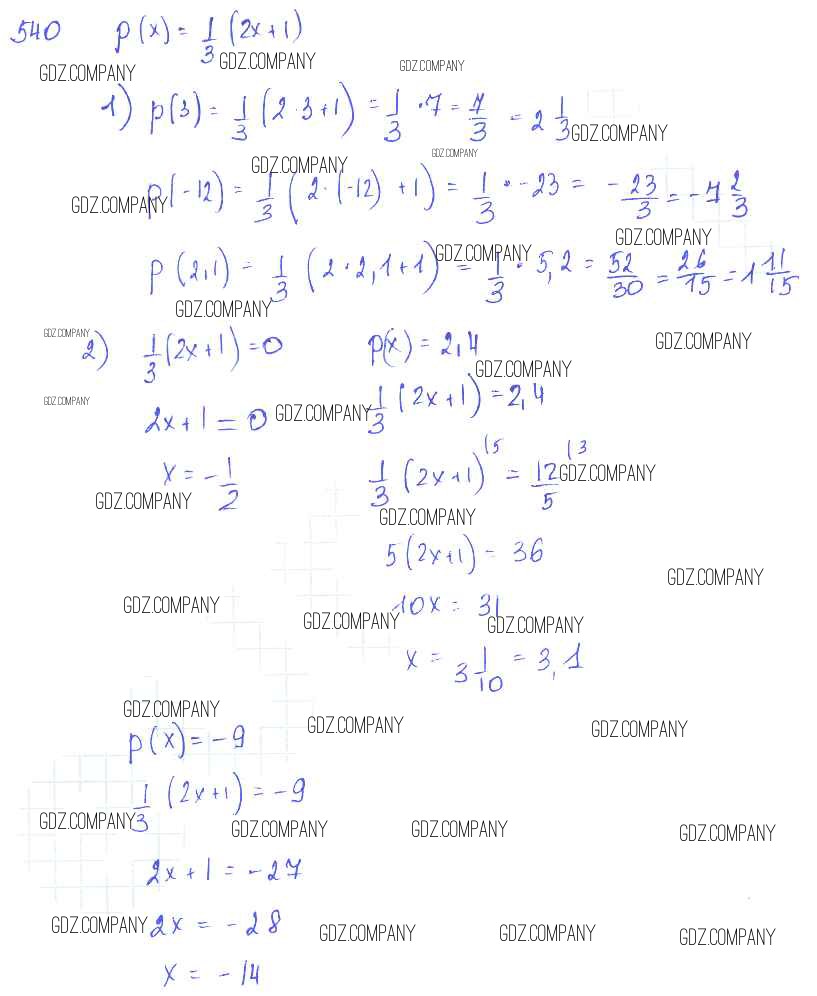 540 p(x) = 1/3 (2x+1)
GDZ.COMPANY GDZ.COMPANY GDZ.COMPANY
1) p(3) = 1/3 (2·3+1) = 1/3 ·7 = 7/3 = 2 1/3
GDZ.COMPANY
GDZ.COMPANY GDZ.COMPANY
p(-12) = 1/3 (2·(-12)+1) = 1/3 · -23 = -23/3 = -7 2/3
GDZ.COMPANY
GDZ.COMPANY GDZ.COMPANY
p(2,1) = 1/3 (2·2,1+1) = 1/3 · 5,2 = 52/30 = 26/15 = 1 11/15
GDZ.COMPANY
2) 1/3 (2x+1) = 0 p(x) = 2,4
GDZ.COMPANY GDZ.COMPANY GDZ.COMPANY
2x+1 = 0 1/3 (2x+1) = 2,4
GDZ.COMPANY GDZ.COMPANY
x = -1/2 1/3 (2x+1) (5 = 12/5 (3
GDZ.COMPANY GDZ.COMPANY
GDZ.COMPANY
5(2x+1) = 36
GDZ.COMPANY
10x = 31
GDZ.COMPANY GDZ.COMPANY GDZ.COMPANY
x = 3 1/10 = 3,1
GDZ.COMPANY GDZ.COMPANY GDZ.COMPANY
p(x) = -9
1/3 (2x+1) = -9
GDZ.COMPANY GDZ.COMPANY GDZ.COMPANY GDZ.COMPANY
2x+1 = -27
2x = -28
GDZ.COMPANY GDZ.COMPANY GDZ.COMPANY GDZ.COMPANY
x = -14